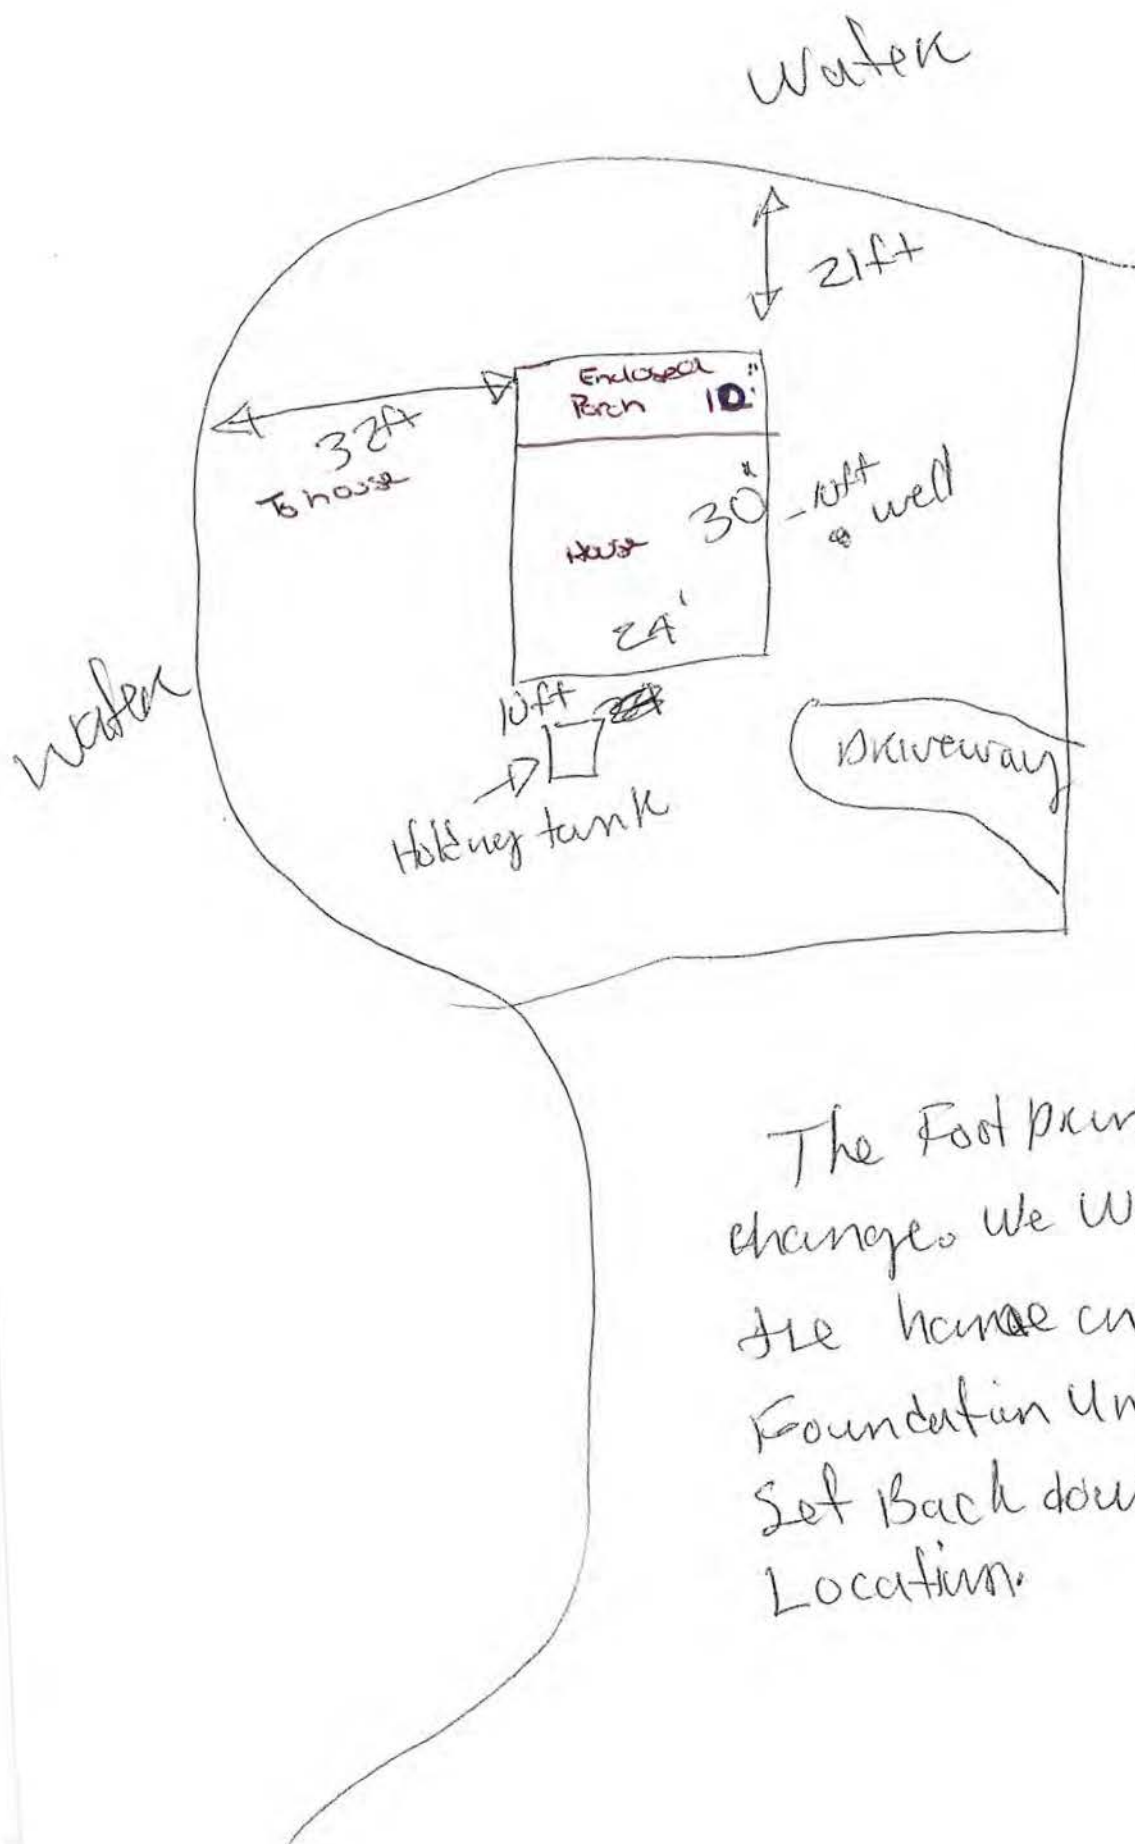 Water
21ft
Enclosed
Porch 10'
32ft
To house
House
30"
10ft
well
24'
Water
10ft
Driveway
Holding tank
The Foot prin
change. We W
the
Foundation Un
Set Back dow
Location.